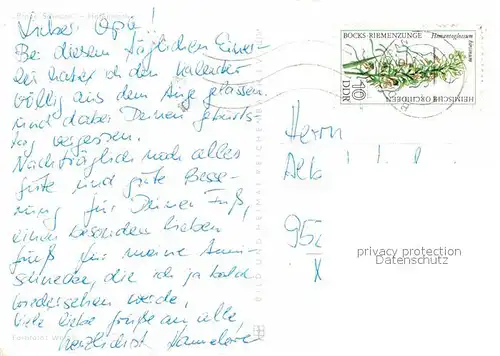 Lieber Opa!
Bei diesem täglichen Einer-
lei habe ich den Kalender
völlig aus dem Auge gelassen
und dabei Deinen Geburts-
tag vergessen.
Nachträglich noch alles
gute und gute Besse-
rung für Deinen Fuß,
einen besonders lieben
gruß für meine
schnecke, die ich ja bald
wiedersehen werde,
viele liebe grüße an alle,
herzlichst Hannelore
BOCKS-RIEMENZUNGE
Himantoglossum hircinum
HEIMISCHE ORCHIDEEN
10
DDR
Herrn
95
X
privacy protection
Datenschutz
BILD UND HEIMAT REICHENBACH